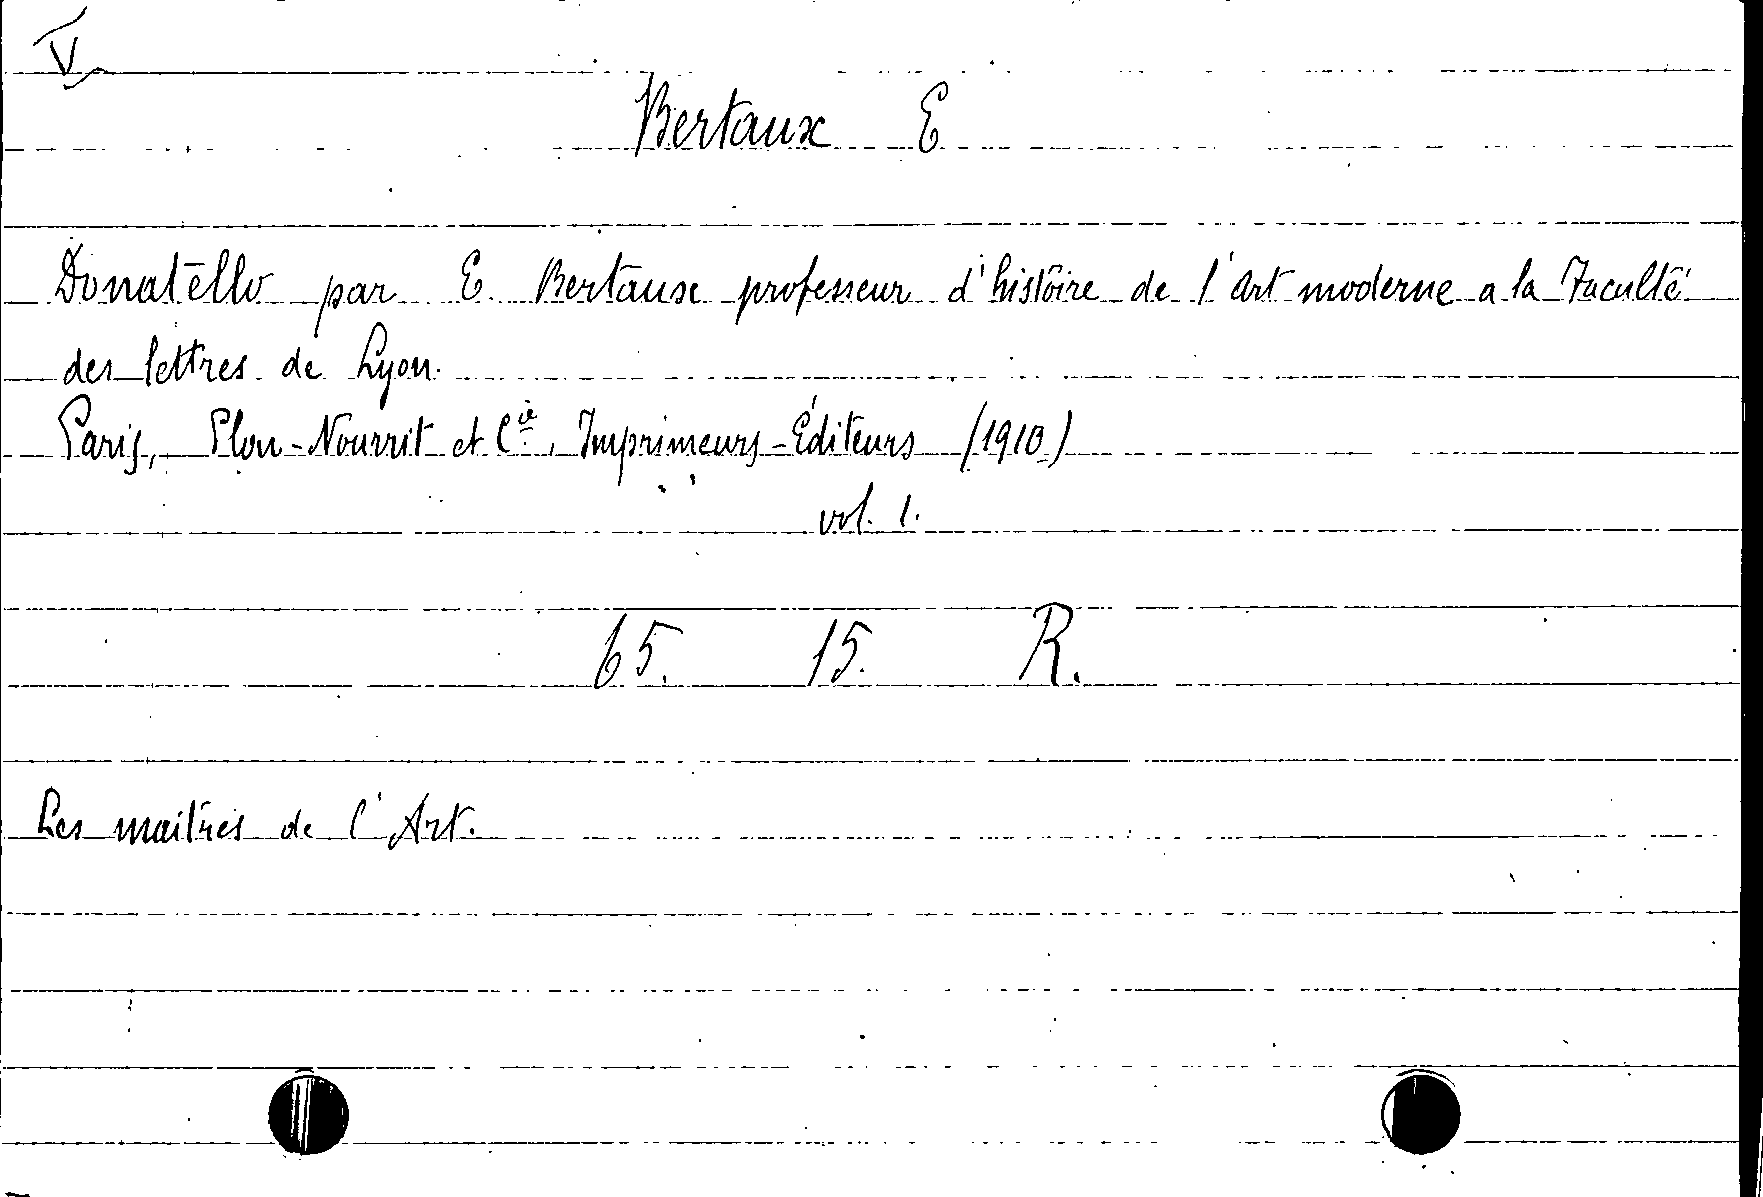 V
Bertaux E
Donatello par E. Bertaux professeur d'histoire de l'Art moderne a la Faculté
des lettres de Lyon.
Paris, Plon-Nourrit et Cie, Imprimeurs-Éditeurs (1910)
vol. 1.
65. 15. R.
Les maitres de l'Art.